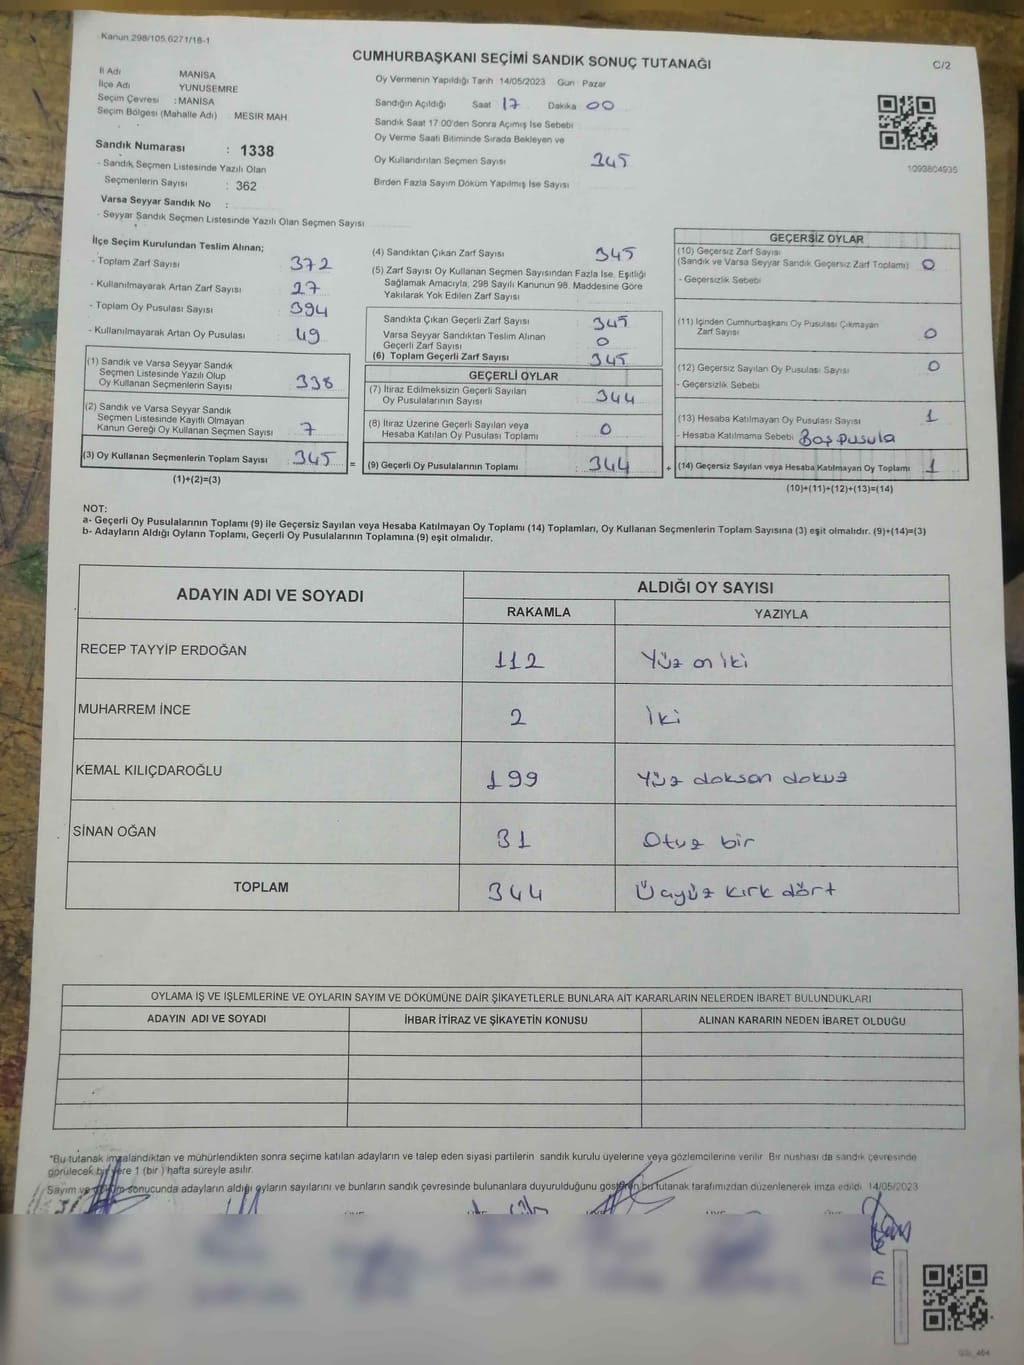 Kanun 298/105,6271/18-1
CUMHURBAŞKANI SEÇİMİ SANDIK SONUÇ TUTANAĞI
C/2
İl Adı MANİSA
İlçe Adı YUNUSEMRE
Seçim Çevresi : MANİSA
Seçim Bölgesi (Mahalle Adı) MESİR MAH.
Sandık Numarası : 1338
- Sandık Seçmen Listesinde Yazılı Olan
Seçmenlerin Sayısı : 362
Varsa Seyyar Sandık No :
- Seyyar Sandık Seçmen Listesinde Yazılı Olan Seçmen Sayısı
Oy Vermenin Yapıldığı Tarih 14/05/2023 Gün : Pazar
Sandığın Açıldığı Saat 17 Dakika 00
Sandık Saat 17:00'den Sonra Açımış İse Sebebi
Oy Verme Saati Bitiminde Sırada Bekleyen ve
Oy Kullandırılan Seçmen Sayısı 345
Birden Fazla Sayım Döküm Yapılmış İse Sayısı
1093804935
İlçe Seçim Kurulundan Teslim Alınan;
- Toplam Zarf Sayısı 372
- Kullanılmayarak Artan Zarf Sayısı 27
- Toplam Oy Pusulası Sayısı 394
- Kullanılmayarak Artan Oy Pusulası 49
(1) Sandık ve Varsa Seyyar Sandık
Seçmen Listesinde Yazılı Olup
Oy Kullanan Seçmenlerin Sayısı 338
(2) Sandık ve Varsa Seyyar Sandık
Seçmen Listesinde Kayıtlı Olmayan
Kanun Gereği Oy Kullanan Seçmen Sayısı 7
(3) Oy Kullanan Seçmenlerin Toplam Sayısı 345 =
(1)+(2)=(3)
(4) Sandıktan Çıkan Zarf Sayısı 345
(5) Zarf Sayısı Oy Kullanan Seçmen Sayısından Fazla İse, Eşitliği
Sağlamak Amacıyla, 298 Sayılı Kanunun 98. Maddesine Göre
Yakılarak Yok Edilen Zarf Sayısı
Sandıkta Çıkan Geçerli Zarf Sayısı 345
Varsa Seyyar Sandıktan Teslim Alınan
Geçerli Zarf Sayısı 0
(6) Toplam Geçerli Zarf Sayısı 345
GEÇERLİ OYLAR
(7) İtiraz Edilmeksizin Geçerli Sayılan
Oy Pusulalarının Sayısı 344
(8) İtiraz Üzerine Geçerli Sayılan veya
Hesaba Katılan Oy Pusulası Toplamı 0
(9) Geçerli Oy Pusulalarının Toplamı 344 +
GEÇERSİZ OYLAR
(10) Geçersiz Zarf Sayısı
(Sandık ve Varsa Seyyar Sandık Geçersiz Zarf Toplamı) 0
- Geçersizlik Sebebi
(11) İçinden Cumhurbaşkanı Oy Pusulası Çıkmayan
Zarf Sayısı 0
(12) Geçersiz Sayılan Oy Pusulası Sayısı 0
- Geçersizlik Sebebi
(13) Hesaba Katılmayan Oy Pusulası Sayısı 1
- Hesaba Katılmama Sebebi Boş pusula
(14) Geçersiz Sayılan veya Hesaba Katılmayan Oy Toplamı 1
(10)+(11)+(12)+(13)=(14)
NOT:
a- Geçerli Oy Pusulalarının Toplamı (9) ile Geçersiz Sayılan veya Hesaba Katılmayan Oy Toplamı (14) Toplamları, Oy Kullanan Seçmenlerin Toplam Sayısına (3) eşit olmalıdır. (9)+(14)=(3)
b- Adayların Aldığı Oyların Toplamı, Geçerli Oy Pusulalarının Toplamına (9) eşit olmalıdır.
ADAYIN ADI VE SOYADI ALDIĞI OY SAYISI
RAKAMLA YAZIYLA
RECEP TAYYİP ERDOĞAN 112 Yüz on iki
MUHARREM İNCE 2 İki
KEMAL KILIÇDAROĞLU 199 Yüz doksan dokuz
SİNAN OĞAN 31 Otuz bir
TOPLAM 344 Üçyüz kırk dört
OYLAMA İŞ VE İŞLEMLERİNE VE OYLARIN SAYIM VE DÖKÜMÜNE DAİR ŞİKAYETLERLE BUNLARA AİT KARARLARIN NELERDEN İBARET BULUNDUKLARI
ADAYIN ADI VE SOYADI İHBAR İTİRAZ VE ŞİKAYETİN KONUSU ALINAN KARARIN NEDEN İBARET OLDUĞU
"Bu tutanak imzalandıktan ve mühürlendikten sonra seçime katılan adayların ve talep eden siyasi partilerin sandık kurulu üyelerine veya gözlemcilerine verilir. Bir nüshası da sandık çevresinde
görülecek bir yere 1 (bir ) hafta süreyle asılır.
Sayım ve döküm sonucunda adayların aldığı oyların sayılarını ve bunların sandık çevresinde bulunanlara duyurulduğunu gösteren bu tutanak tarafımızdan düzenlenerek imza edildi. 14/05/2023
E